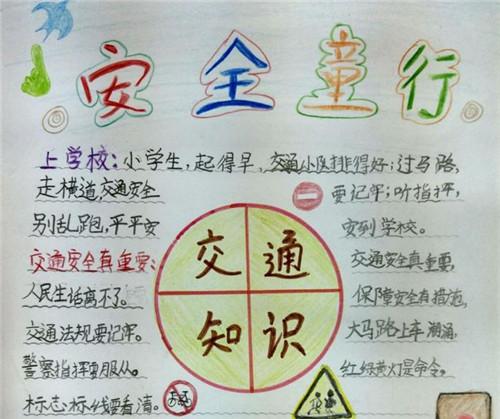 安全童行
上学校：小学生，起得早，交通小队排得好；过马路，
走横道，交通安全
要记牢；听指挥，
别乱跑，平平安
安到学校。
交通
知识
交通安全真重要：
人民生活离不了。
交通法规要记牢。
警察指挥要服从。
标志标线要看清。
交通安全真重要，
保障安全有措施，
大马路上车潮涌，
红绿黄灯是命令，